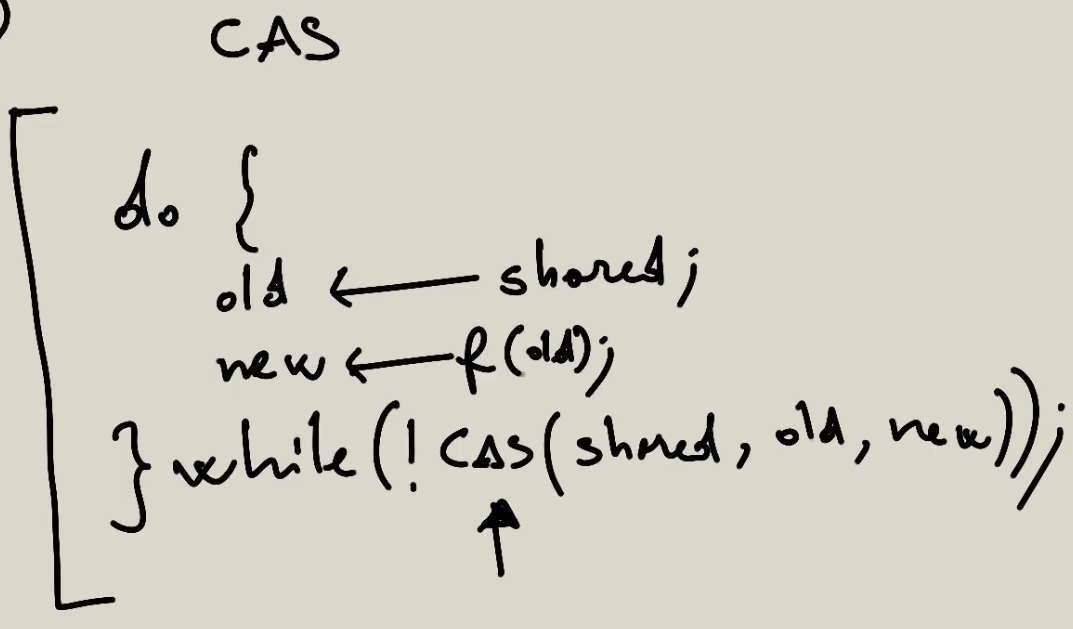 CAS
do {
old ← shared;
new ← f(old);
} while(! CAS(shared, old, new));